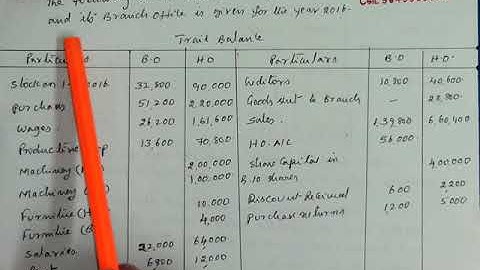 and its Branch Office is given for the year 2016.
Trail Balance
Particulars B.O H.O Particulars B.O H.O
Stock on 1- 2016 32,800 90,000 Creditors 10,800 40,600
purchases 51,200 2,20,000 Goods sent to Branch - 28,800
wages 26,200 1,61,600 Sales 1,39,800 6,60,400
Productive 13,600 70,800 H.O A/C 56,000
Machinery 2,00,000 Share Capital in 4,00,000
Machinery 1,00,000 8,10 shares
Furniture (H 10,000 Discount Received 600 2,200
Furniture (B 4,000 Purchase returns 1200 5,000
Salaries 22,000 64,000
6800 12,000